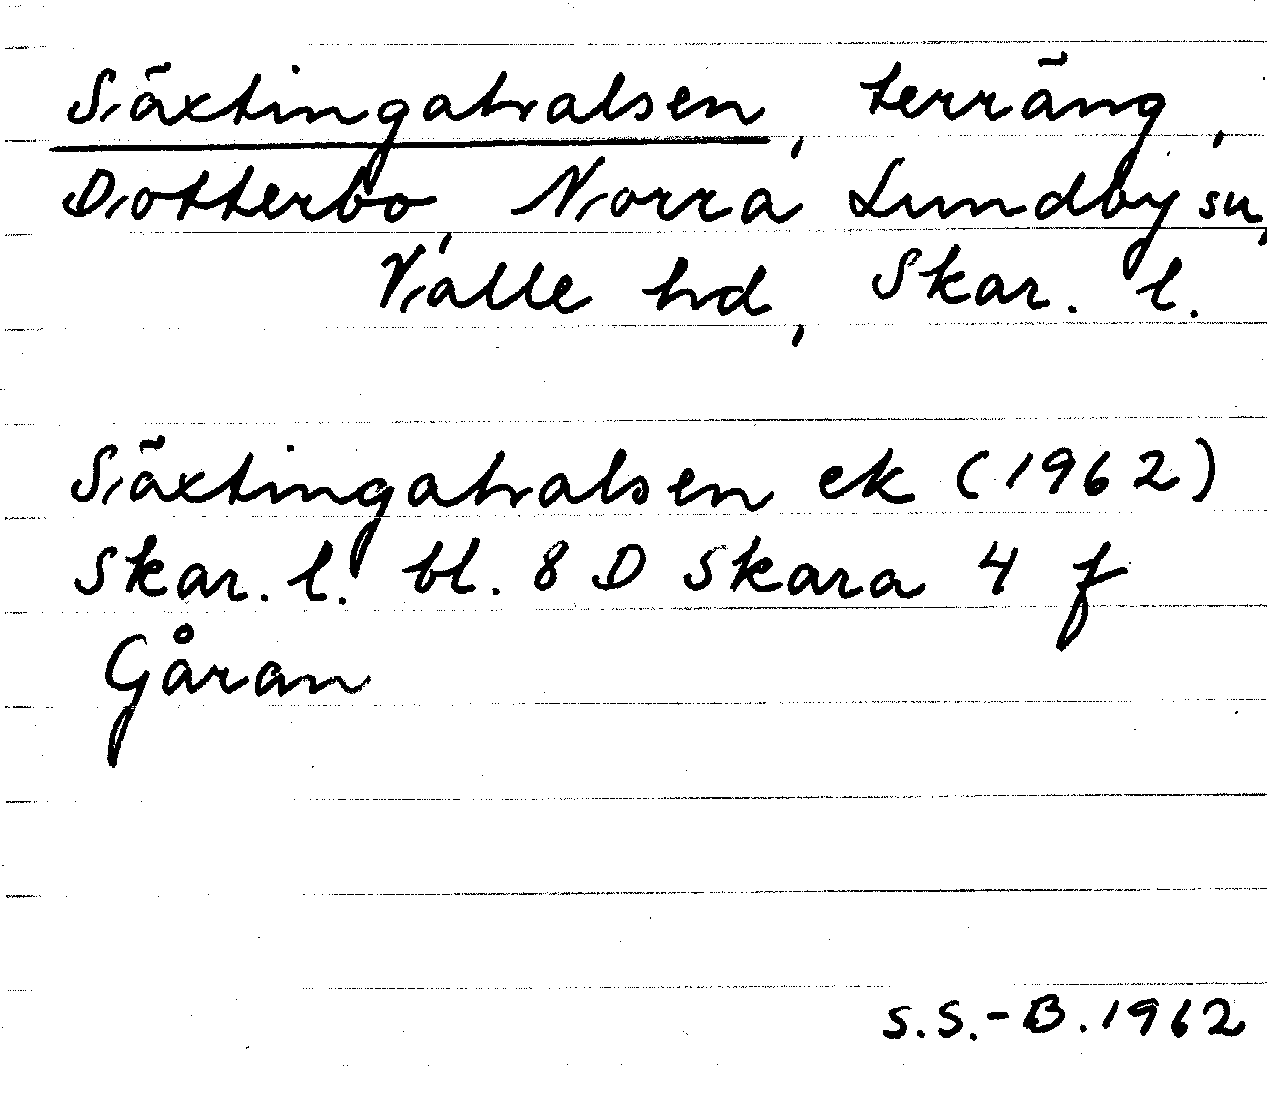 Säxtingahalsen, terräng,
Dotterbo, Norra Lundby sn,
Valle hd, Skar. l.
Säxtingahalsen ek (1962)
Skar. l. bl. 8 D Skara 4 f
Gåran
S.S.-B. 1962